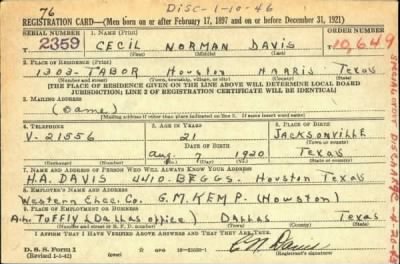 76
Disc-1-10-46
REGISTRATION CARD—(Men born on or after February 17, 1897 and on or before December 31, 1921)
SERIAL NUMBER 1. NAME (Print) ORDER NUMBER
2359 CECIL NORMAN DAVIS 10,649
(First) (Middle) (Last)
2. PLACE OF RESIDENCE (Print)
1303-TABOR Houston HARRIS Texas
(Number and street) (Town, township, village, or city) (County) (State)
[THE PLACE OF RESIDENCE GIVEN ON THE LINE ABOVE WILL DETERMINE LOCAL BOARD
JURISDICTION; LINE 2 OF REGISTRATION CERTIFICATE WILL BE IDENTICAL]
3. MAILING ADDRESS
(Same)
[Mailing address if other than place indicated on line 2. If same insert word same]
4. TELEPHONE 5. AGE IN YEARS 6. PLACE OF BIRTH
V-21556 21 JACKSONVILLE
DATE OF BIRTH (Town or county)
Aug. 7 1920 Texas
(Exchange) (Number) (Mo.) (Day) (Yr.) (State or country)
7. NAME AND ADDRESS OF PERSON WHO WILL ALWAYS KNOW YOUR ADDRESS
H.A. DAVIS 4410-BEGGS. Houston Texas
8. EMPLOYER'S NAME AND ADDRESS
Western Elec. Co. G.M. KEMP. (Houston)
9. PLACE OF EMPLOYMENT OR BUSINESS
TUFFLY (Dallas office) DALLAS Texas
(Number and street or R. F. D. number) (Town) (County) (State)
I AFFIRM THAT I HAVE VERIFIED ABOVE ANSWERS AND THAT THEY ARE TRUE.
D. S. S. Form 1
(Revised 1-1-42) (over)
C N Davis